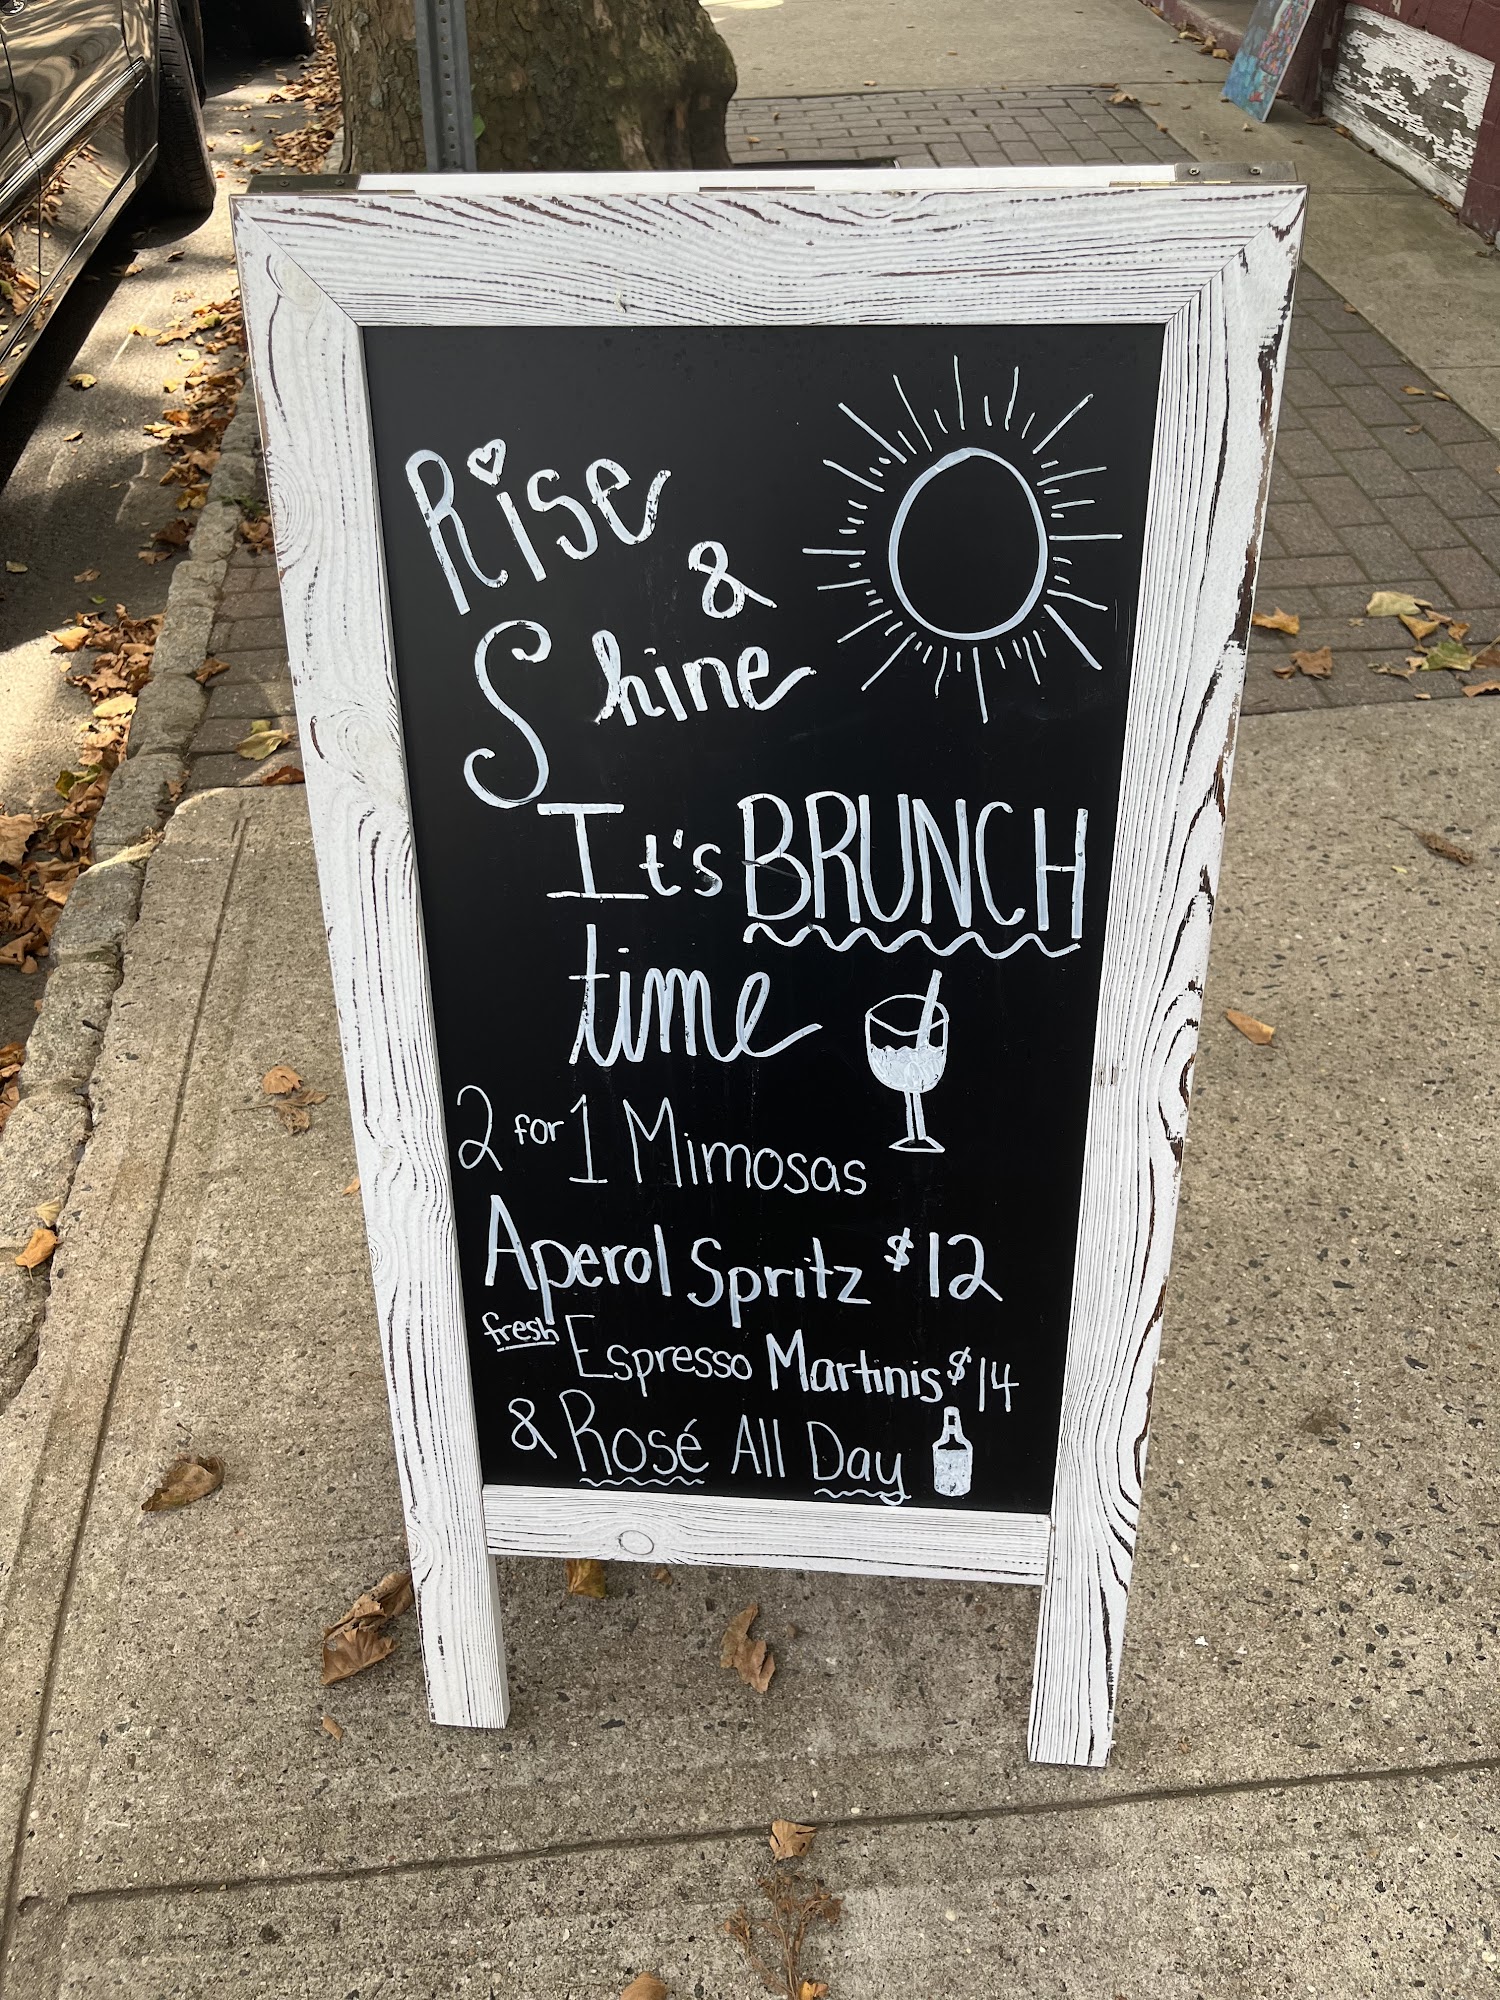 Rise
&
Shine
It's BRUNCH
time
2 for 1 Mimosas
Aperol Spritz $12
fresh Espresso Martinis $14
& Rosé All Day